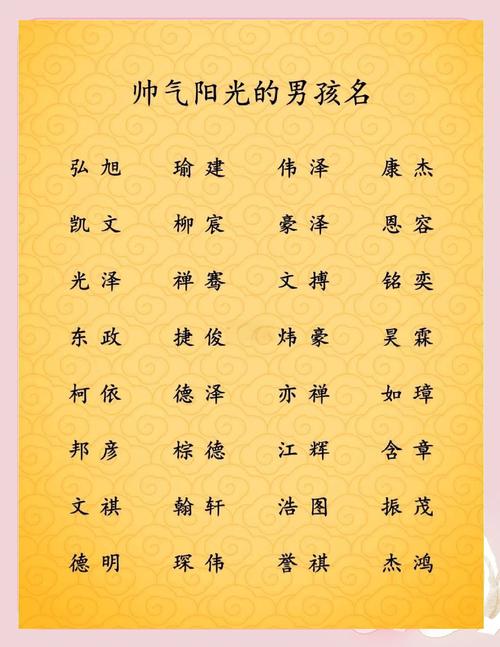 帅气阳光的男孩名
弘旭 瑜建 伟泽 康杰
凯文 柳宸 豪泽 恩容
光泽 禅骞 文搏 铭奕
东政 捷俊 炜豪 昊霖
柯依 德泽 亦禅 如璋
邦彦 棕德 江辉 含章
文祺 翰轩 浩图 振茂
德明 琛伟 誉祺 杰鸿